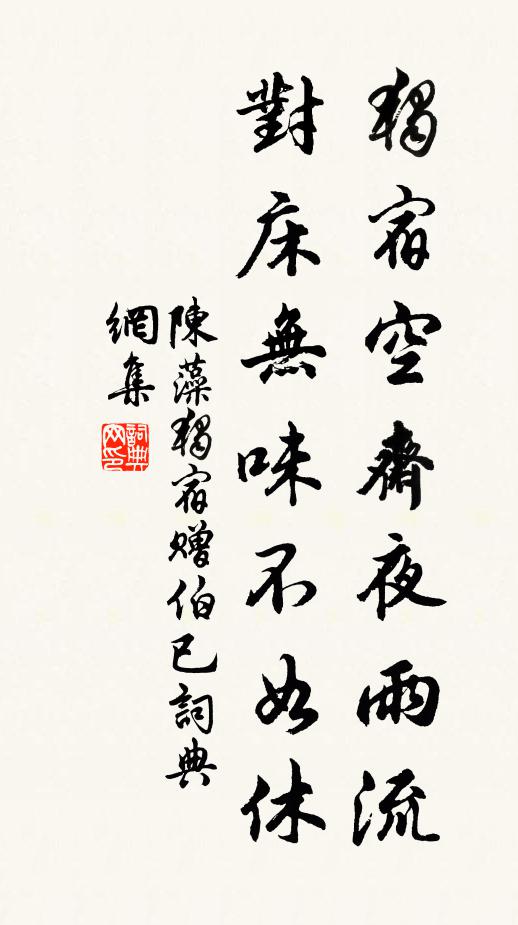 獨宿空齋夜雨流
對床無味不如休
陳藻獨宿贈伯已詞典
網集
詞典網印